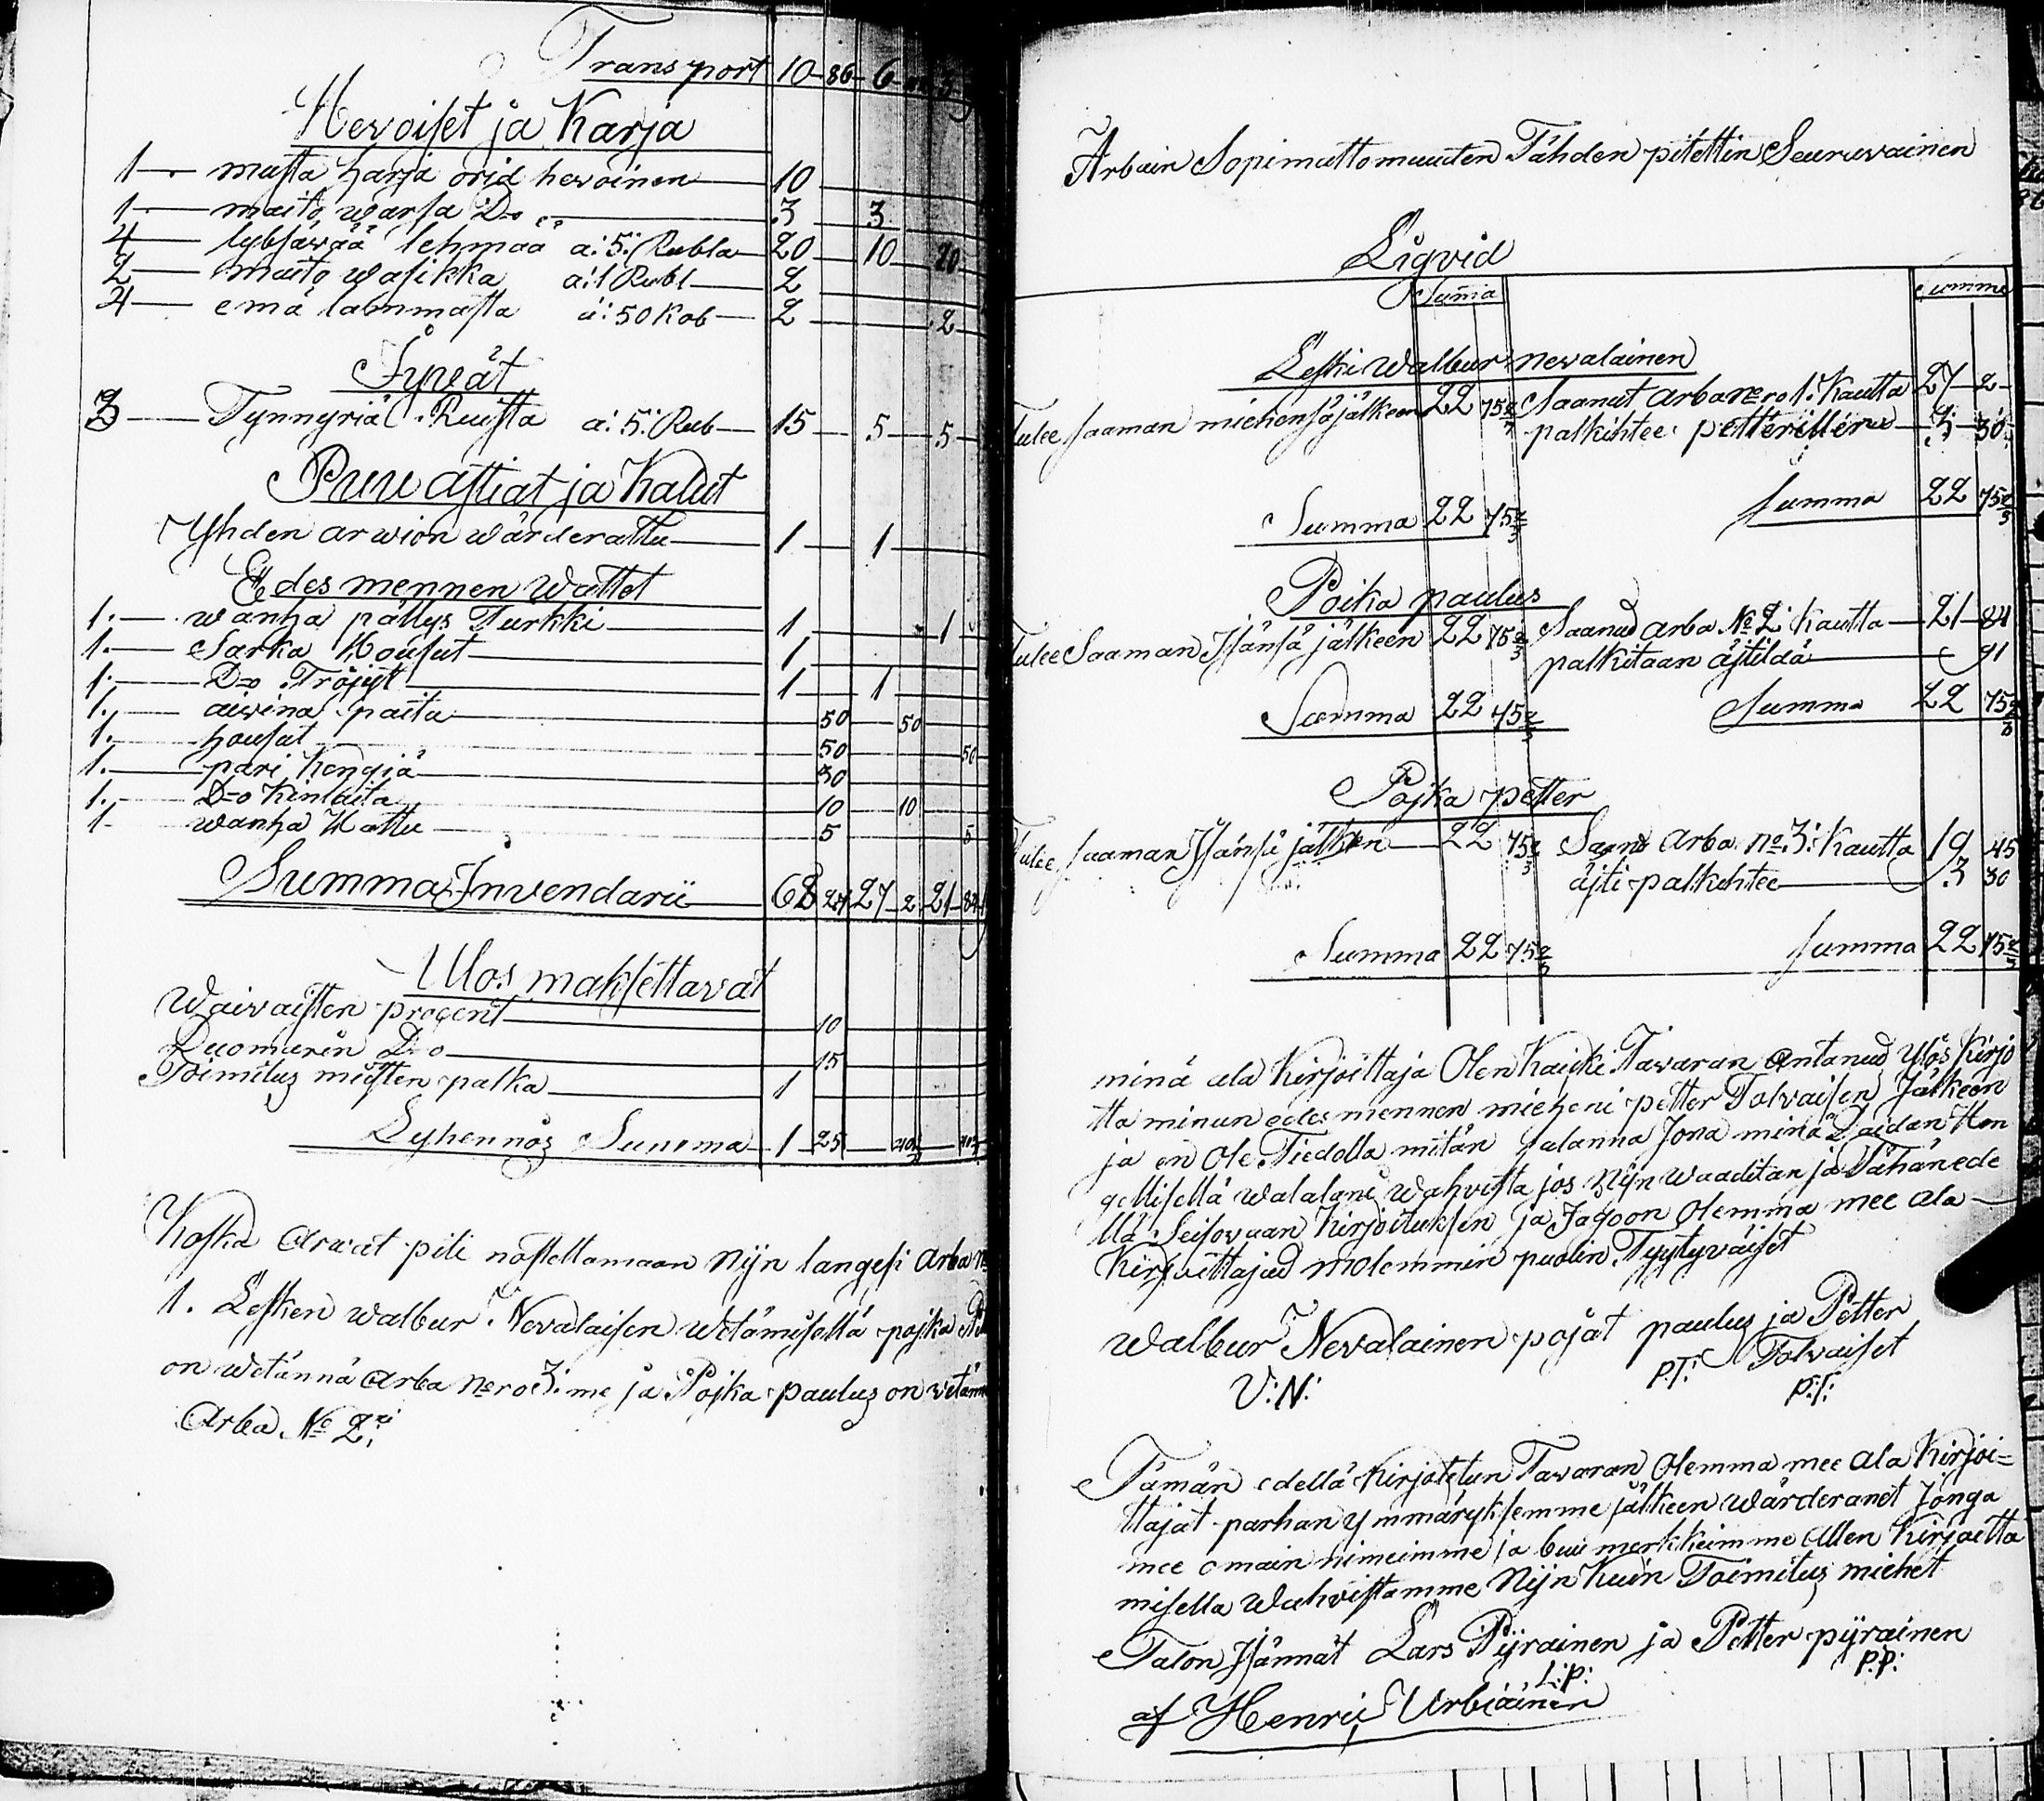 Transport 10 86 6
Hevoiset ja Karja
1 musta harja orid hevoinen 10
1 maito warsa D:o 3 3
4 lybsäwää lehmää a: 5: Rubla 20 10 20
2 maito wasikka a: 1 Rubl 2
4 emä lammasta a: 50 Kob 2 2
Jyvät
3 Tynnyriä Ruista a: 5: Rub 15 5 5
Puu astiat ja Kalut
Yhden arwion wärderattu 1 1
Edes mennen Wattet
1. wanha pällys Turkki 1 1
1. Sarka Housut 1
1. D:o Tröjyt 1 1
1. aiwina paita 50 50
1. housut 50 50
1. pari Kengiä 30
1. D:o Kintaita 10 10
1 wanha Hattu 5 5
Summa Invendarii 68 24 27 2 21 84
Ulos maksettavat
Waivaisten procent 10
Duomarin D:o 15
Toimitus miesten palka 1
Lyhennös Summa 1 25
Koska Arvat piti nostettamaan Nijn langesi Arba
1. Lesken walbur Nevalaisen wetämisellä pojka
on wetännä Arba Nero 3:me ja Pojka paulus on
Arba No 2:
Arbain Sopimattomuuten Tähden pitettin Seuruvainen
Liqvid
Suma Summa
Leski Walbur nevalainen
Tulee saaman miehensä jälkeen 22 75 2/3 Saanut arba nero 1: Kautta 27 2
palkihtee petterillen 30
Summa 22 75 2/3 Summa 22 75 2/3
Poika paulus
Tulee Saaman Isänsä jälkeen 22 75 2/3 Saanud arba No 2: Kautta 21 84
palkitaan äjtildä 91
Summa 22 75 2/3 Summa 22 75 2/3
Pojka petter
Tulee saaman Isänsä jälken 22 75 2/3 Saand arba no 3: Kautta 19 45
äjti palkihtee 3 30
Summa 22 75 2/3 Summa 22 75 2/3
minä ala Kirjoittaja Olen Kaicki Tawaran Antanud Ylös Kirjo
tta minun edes mennen mieheni petter Tolvaisen Jälkeen
ja en Ole Tiedolla mitän salanna Jona minä Taidan Hen
gellisellä walalani Wahvista jos Nijn Waaditan ja Tähän ede
llä Seisovaan Kirjoituksen ja Jagoon Olemma mee ala
Kirjoittajud molemmin puolin Tyytyväiset
Walbur Nevalainen pojat paulus ja Petter
V:N: P:T: Tolvaiset
P:T:
Tämän edellä Kirjotetun Tawaran Olemma mee ala Kirjoi=
ttajat parhan ymmäryksemme jälkeen Wärderanet Jonga
mee omain nimeimme ja buu merkkeimme Allen Kirjoitta
misella Wahvistamme Nijn Kuin Toimitus miehet
Talon Isännät Lars Pyrainen ja Petter pyrainen
L:P: P:P:
af Henric Urbiainen